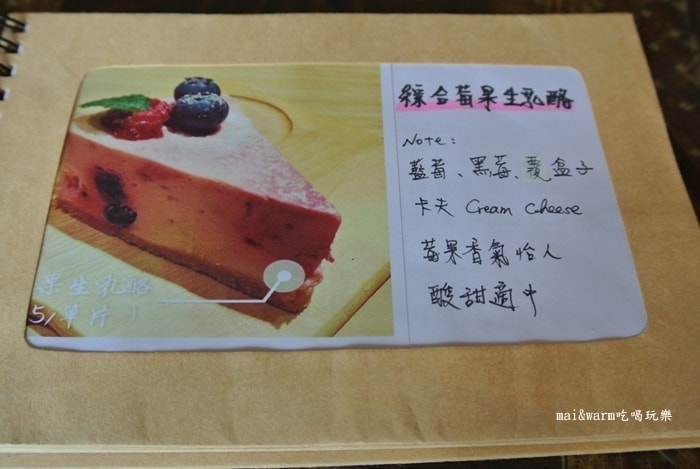 綜合莓果生乳酪
Note:
藍莓、黑莓、覆盒子
卡夫 Cream Cheese
莓果香氣怡人
酸甜適中
果生乳酪
5/單片 )
mai&warm吃喝玩樂